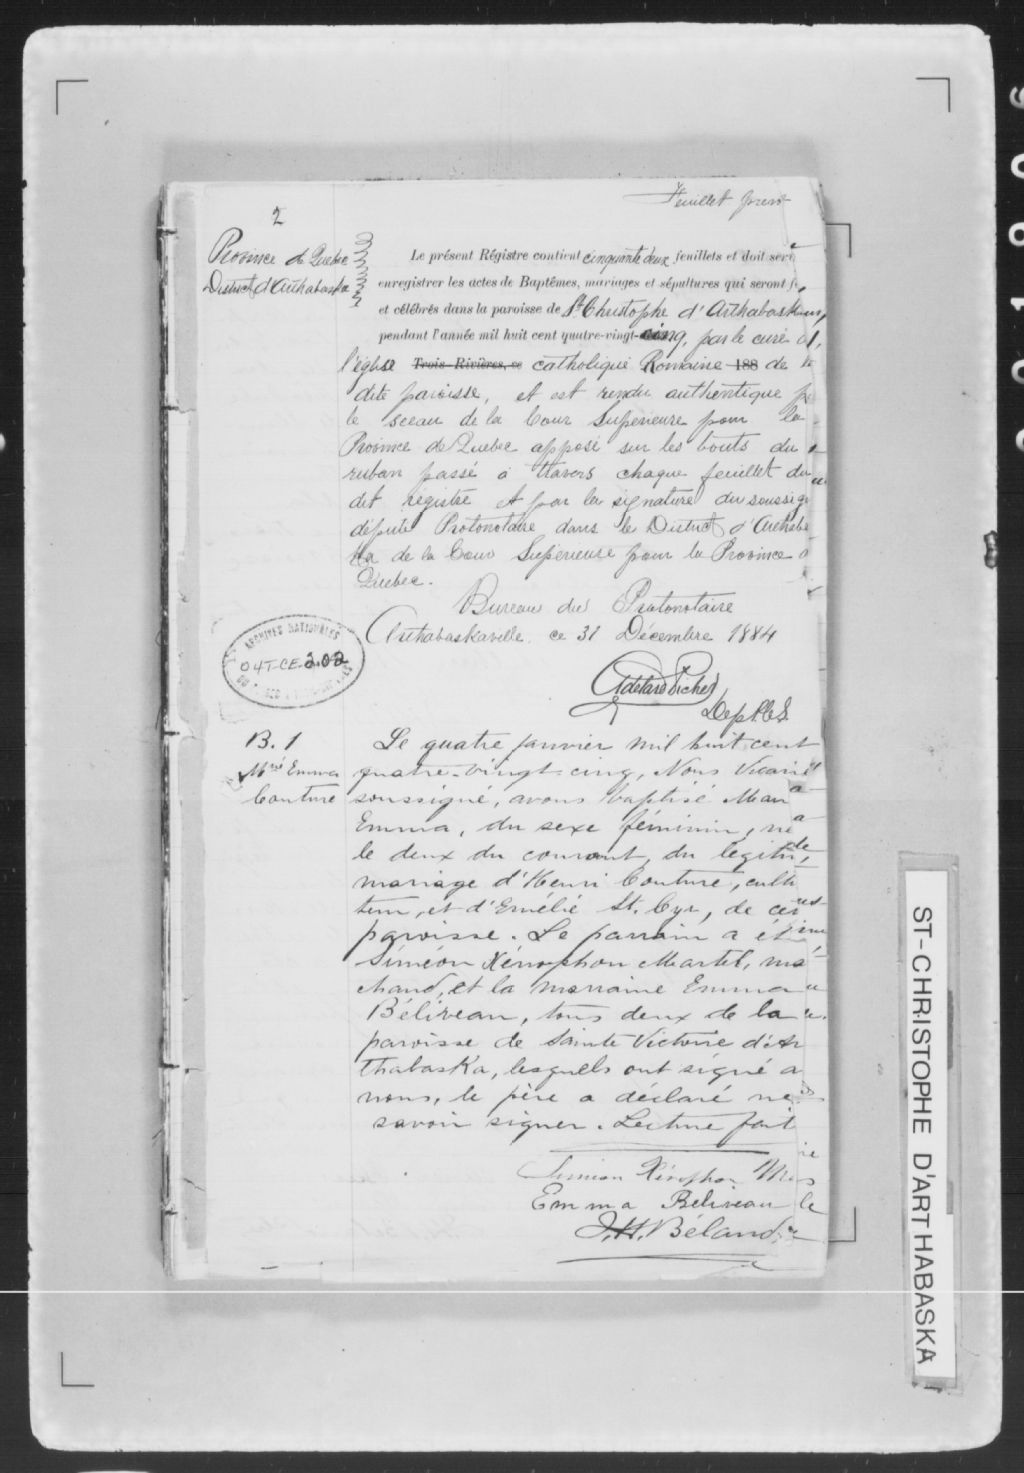 2
Feuillet prem
Province de Quebec
District d'Arthabaska
Le présent Régistre contient cinquante deux feuillets et doit servi
enregistrer les actes de Baptêmes, mariages et sépultures qui seront f
et célébrés dans la paroisse de St Christophe d'Arthabaska
pendant l'année mil huit cent quatre-vingt-cinq, par le curé
l'église Trois-Rivières, ce catholique Romaine 188 de
dite paroisse, et est rendu authentique p
le sceau de la Cour Superieure pour la
Province de Quebec apposé sur les bouts du
ruban passé à travers chaque feuillet du
dit régistre et par la signature du soussig
député Protonotaire dans le District d'Arthaba
ka de la Cour Superieure pour la Province
Quebec.
Bureau du Protonotaire
Arthabaskaville ce 31 Décembre 1884
ARCHIVES NATIONALES
04T-CE-2.02
DU QUÉBEC
Adelard Picher
Dep P.C.S.
B. 1
Mrie Emma
Couture
Le quatre janvier mil huit cent
quatre-vingt-cinq, Nous Vicaire
soussigné, avons baptisé Marie
Emma, du sexe féminin, né
le deux du courant, du légiti
mariage d'Henri Couture, culti
teur, et d'Emélie St. Cyr, de cet
paroisse. Le parrain a ét
Siméon Xénophon Martel, ma
chand, et la marraine Emma
Béliveau, tous deux de la
paroisse de Sainte Victoire d'Ar
thabaska, lesquels ont signé a
nous, le père a déclaré ne
savoir signer. Lecture fait
Simeon Xénophon Mar
Emma Beliveau
J.H. Béland
ST-CHRISTOPHE D'ARTHABASKA